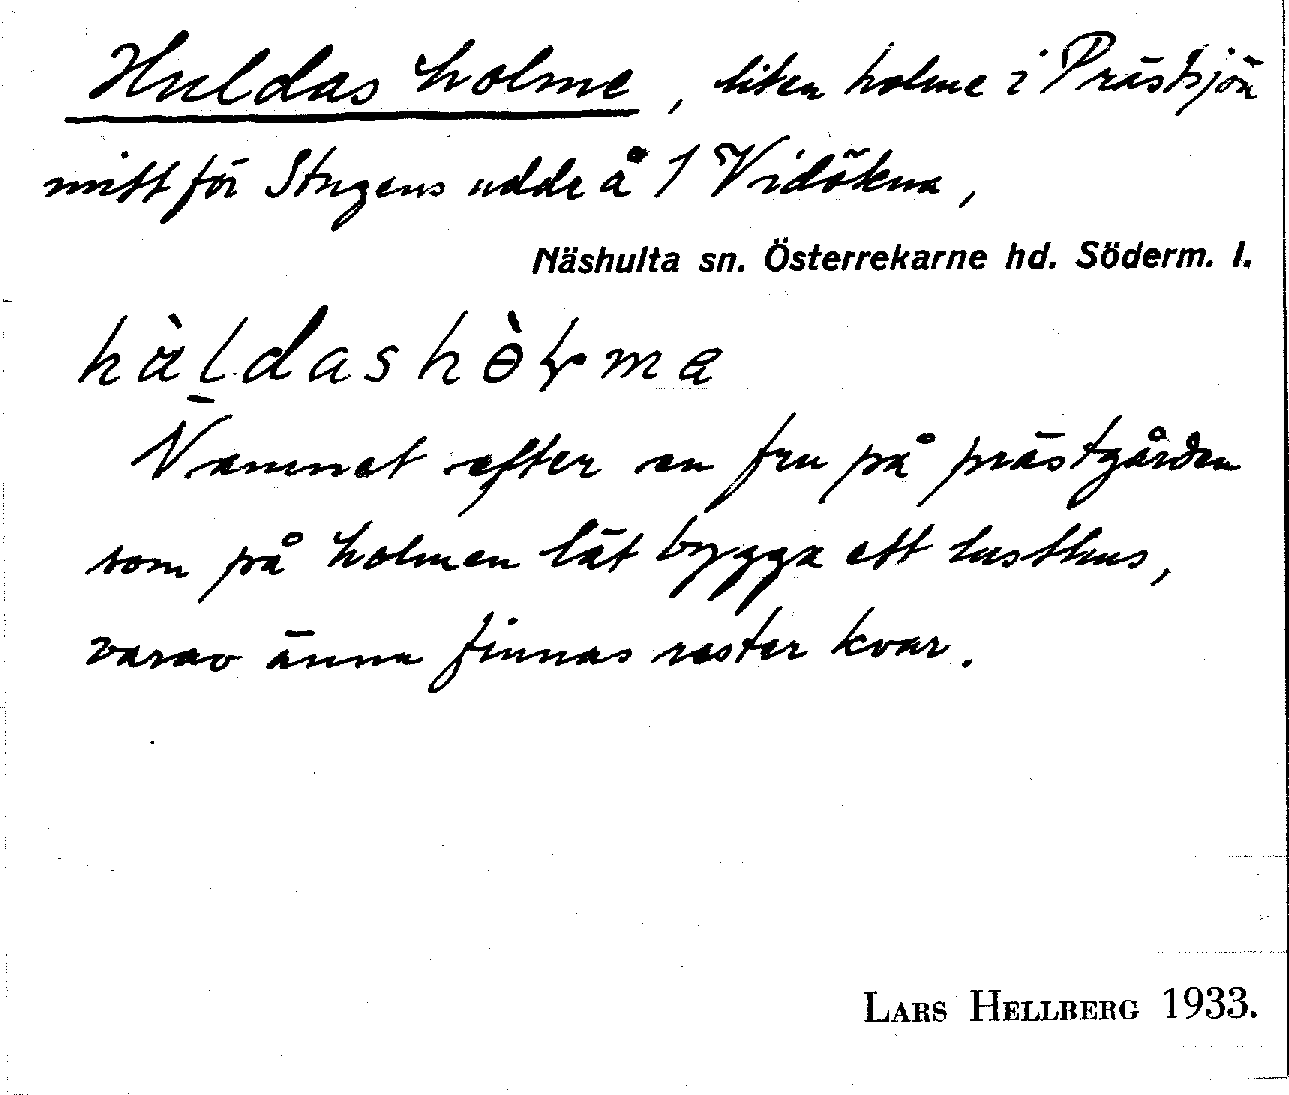 Huldas holme, liten holme i Prästsjön
mitt för Stugans udde å 1 Vidökna,
Näshulta sn. Österrekarne hd. Söderm. l.
Namnet efter en fru på prästgården
som på holmen lät bygga ett lusthus,
varav ännu finnas rester kvar.
LARS HELLBERG 1933.